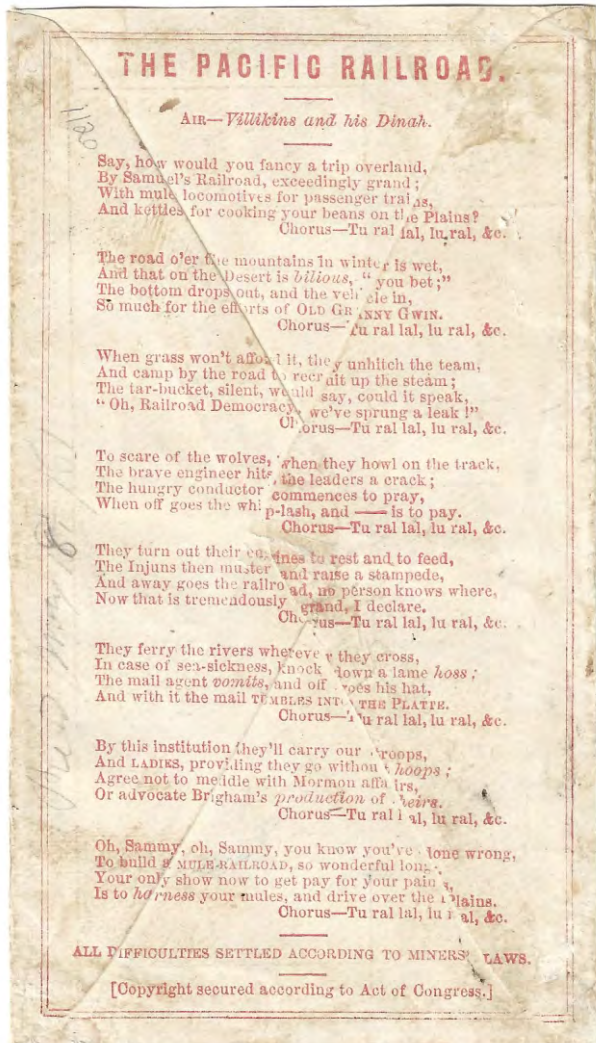 THE PACIFIC RAILROAD.
AIR—Villikins and his Dinah.
1120
Say, how would you fancy a trip overland,
By Samuel's Railroad, exceedingly grand;
With mule locomotives for passenger trains,
And kettles for cooking your beans on the Plains?
Chorus—Tu ral lal, lu ral, &c.
The road o'er the mountains in winter is wet,
And that on the Desert is bilious, "you bet;"
The bottom drops out, and the vehicle in,
So much for the efforts of OLD GRANNY GWIN.
Chorus—Tu ral lal, lu ral, &c.
When grass won't afford it, they unhitch the team,
And camp by the road to recruit up the steam;
The tar-bucket, silent, would say, could it speak,
"Oh, Railroad Democracy, we've sprung a leak!"
Chorus—Tu ral lal, lu ral, &c.
To scare of the wolves, when they howl on the track,
The brave engineer hits the leaders a crack;
The hungry conductor commences to pray,
When off goes the whip-lash, and —— is to pay.
Chorus—Tu ral lal, lu ral, &c.
They turn out their engines to rest and to feed,
The Injuns then muster and raise a stampede,
And away goes the railroad, no person knows where,
Now that is tremendously grand, I declare.
Chorus—Tu ral lal, lu ral, &c.
They ferry the rivers wherever they cross,
In case of sea-sickness, knock down a lame hoss;
The mail agent vomits, and off goes his hat,
And with it the mail TUMBLES INTO THE PLATTE.
Chorus—Tu ral lal, lu ral, &c.
By this institution they'll carry our troops,
And LADIES, providing they go without hoops;
Agree not to meddle with Mormon affairs,
Or advocate Brigham's production of heirs.
Chorus—Tu ral lal, lu ral, &c.
Oh, Sammy, oh, Sammy, you know you've done wrong,
To build a MULE-RAILROAD, so wonderful long;
Your only show now to get pay for your pains,
Is to harness your mules, and drive over the Plains.
Chorus—Tu ral lal, lu ral, &c.
ALL DIFFICULTIES SETTLED ACCORDING TO MINERS' LAWS.
[Copyright secured according to Act of Congress.]